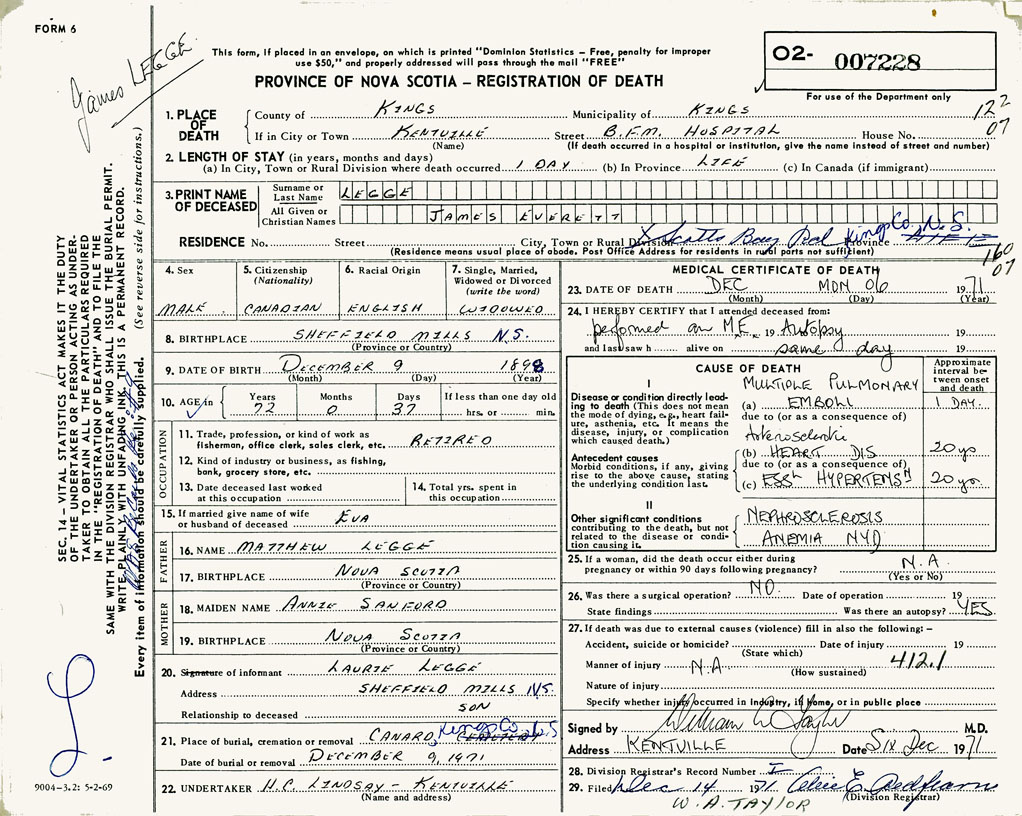 FORM 6
James LEGGE
This form, if placed in an envelope, on which is printed "Dominion Statistics – Free, penalty for improper
use $50," and properly addressed will pass through the mail "FREE"
PROVINCE OF NOVA SCOTIA – REGISTRATION OF DEATH
O2- 007228
For use of the Department only
1. PLACE OF DEATH
County of KINGS Municipality of KINGS
122
07
If in City or Town KENTVILLE Street B.F.M. HOSPITAL House No.
(Name) (If death occurred in a hospital or institution, give the name instead of street and number)
2. LENGTH OF STAY (in years, months and days)
(a) In City, Town or Rural Division where death occurred 1 DAY (b) In Province LIFE (c) In Canada (if immigrant)
3. PRINT NAME OF DECEASED
Surname or Last Name LEGGE
All Given or Christian Names JAMES EVERETT
RESIDENCE No. Street City, Town or Rural Division Scotts Bay Kings Co. N.S. Province
(Residence means usual place of abode. Post Office Address for residents in rural parts not sufficient)
160
07
4. Sex
MALE
5. Citizenship
(Nationality)
CANADIAN
6. Racial Origin
ENGLISH
7. Single, Married,
Widowed or Divorced
(write the word)
WIDOWED
8. BIRTHPLACE SHEFFIELD MILLS N.S.
(Province or Country)
9. DATE OF BIRTH DECEMBER 9 1898
(Month) (Day) (Year)
10. AGE in Years Months Days If less than one day old
72 0 37 hrs. or min.
OCCUPATION
11. Trade, profession, or kind of work as
fisherman, office clerk, sales clerk, etc. RETIRED
12. Kind of industry or business, as fishing,
bank, grocery store, etc.
13. Date deceased last worked
at this occupation
14. Total yrs. spent in
this occupation
15. If married give name of wife
or husband of deceased EVA
FATHER
16. NAME MATTHEW LEGGE
17. BIRTHPLACE NOVA SCOTIA
(Province or Country)
MOTHER
18. MAIDEN NAME ANNIE SANFORD
19. BIRTHPLACE NOVA SCOTIA
(Province or Country)
20. Signature of informant LAURIE LEGGE
Address SHEFFIELD MILLS N.S.
Relationship to deceased SON
21. Place of burial, cremation or removal CANARD, Kings Co. N.S
Date of burial or removal DECEMBER 9, 1971
22. UNDERTAKER H.C. LINDSAY – KENTVILLE
(Name and address)
MEDICAL CERTIFICATE OF DEATH
23. DATE OF DEATH DEC MON 06 1971
(Month) (Day) (Year)
24. I HEREBY CERTIFY that I attended deceased from:
performed an M.E. 19 Autopsy 19
and last saw h alive on same day 19
CAUSE OF DEATH
Approximate
interval be-
tween onset
and death
I
Disease or condition directly lead-
ing to death (This does not mean
the mode of dying, e.g., heart fail-
ure, asthenia, etc. It means the
disease, injury, or complication
which caused death.)
MULTIPLE PULMONARY
(a) EMBOLI 1 DAY
due to (or as a consequence of)
Antecedent causes
Morbid conditions, if any, giving
rise to the above cause, stating
the underlying condition last.
Arteriosclerotic
(b) HEART DIS 20 yo
due to (or as a consequence of)
(c) ESSL HYPERTENSN 20 yo
II
Other significant conditions
contributing to the death, but not
related to the disease or condi-
tion causing it.
NEPHROSCLEROSIS
ANEMIA NYD
25. If a woman, did the death occur either during
pregnancy or within 90 days following pregnancy? N.A
(Yes or No)
26. Was there a surgical operation? NO Date of operation 19
State findings Was there an autopsy? YES
27. If death was due to external causes (violence) fill in also the following: –
Accident, suicide or homicide? Date of injury 19
(State which)
Manner of injury N.A. 412.1
(How sustained)
Nature of injury
Specify whether injury occurred in Industry, in Home, or in public place
Signed by William W Taylor M.D.
Address KENTVILLE Date Six Dec 1971
28. Division Registrar's Record Number
29. Filed Dec 14 1971
(Division Registrar)
W. A. TAYLOR
SEC. 14 – VITAL STATISTICS ACT MAKES IT THE DUTY
OF THE UNDERTAKER OR PERSON ACTING AS UNDER-
TAKER TO OBTAIN ALL THE PARTICULARS REQUIRED
IN THE "REGISTRATION OF DEATH" AND TO FILE THE
SAME WITH THE DIVISION REGISTRAR WHO SHALL ISSUE THE BURIAL PERMIT.
WRITE PLAINLY WITH UNFADING INK. THIS IS A PERMANENT RECORD.
Every item of information should be carefully supplied. (See reverse side for instructions.)
9004-3.2: 5-2-69